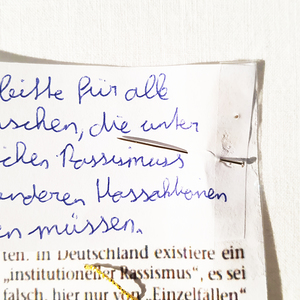 leiste für alle
schen, die unter
ichen Rassismuss
anderen Hassaktionen
en müssen.
ten. In Deutschland existiere ein
„institutioneller Rassismus“, es sei
falsch, hier nur von „Einzelfällen“